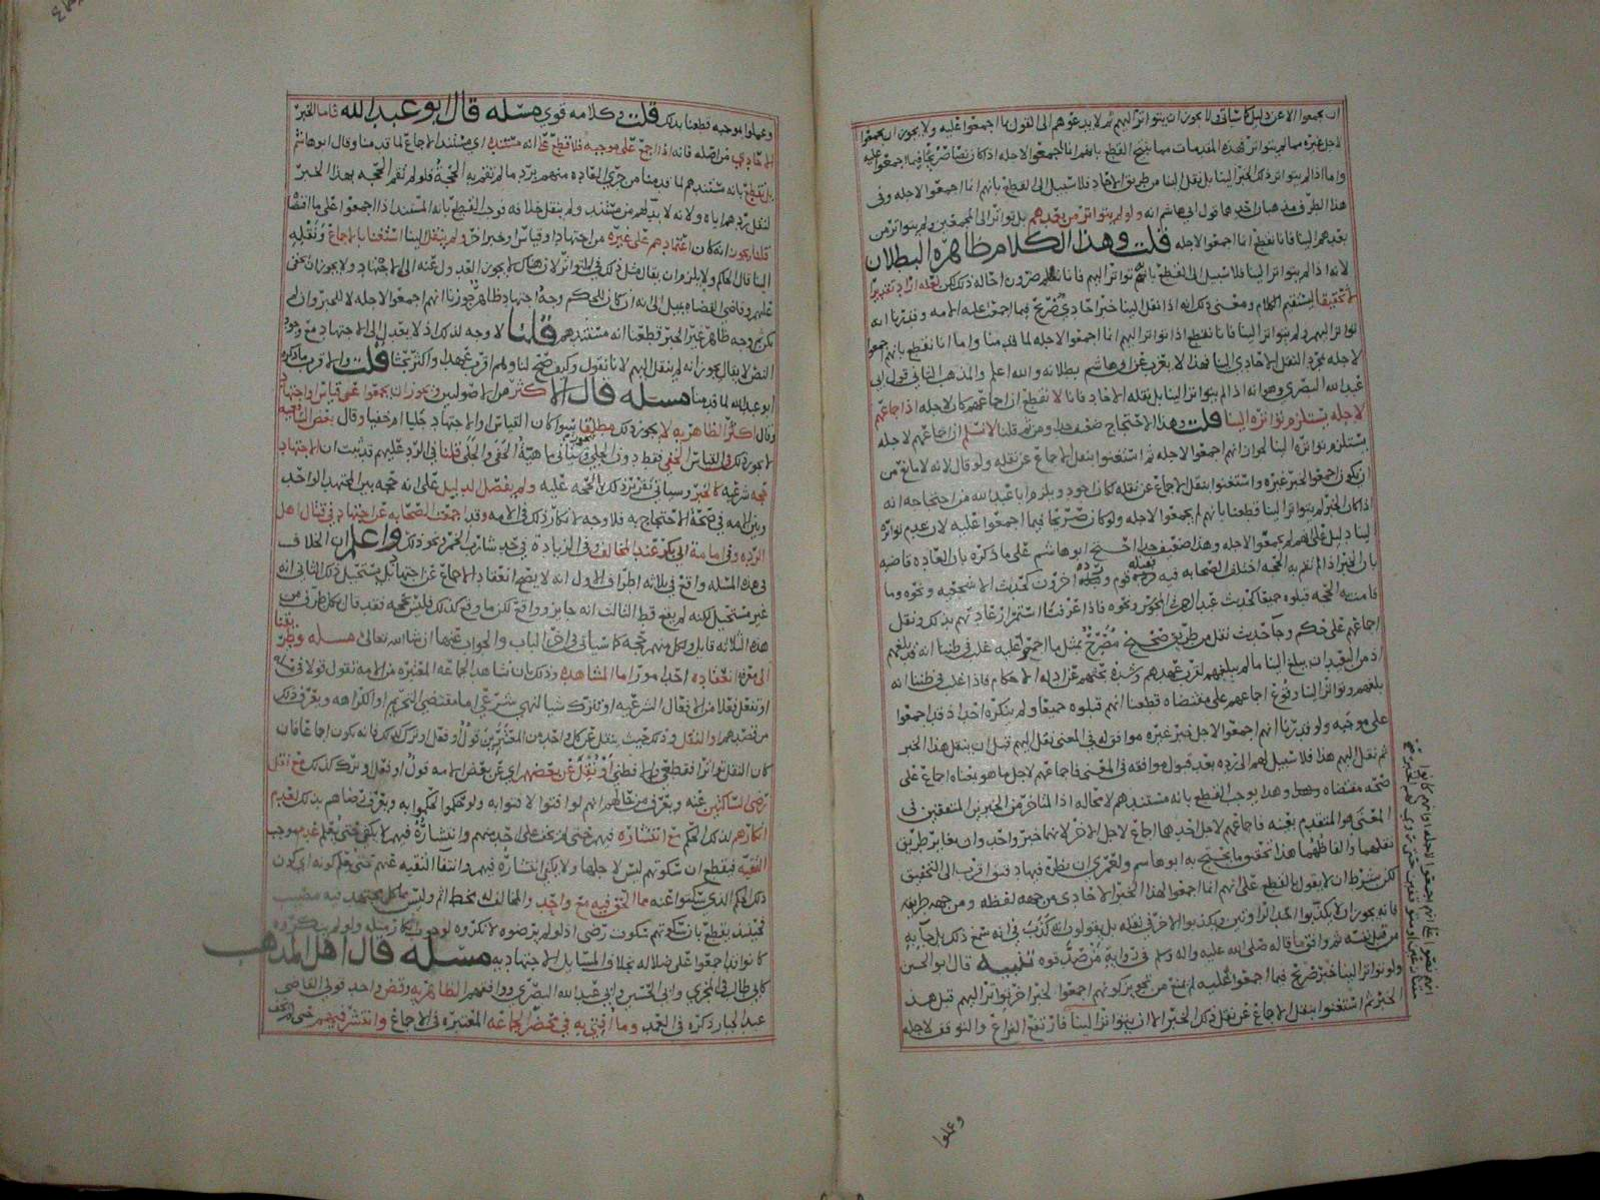 ان يجمعوا الا عن دليل كما سيأتي ولا يجوز ان يتواتر اليهم ثم لا يدعوهم الى القول بما اجمعوا عليه ولا يجوز ان يجمعوا
لاجل غيره مما لم يتواتر فهذه المقدمات مما ينتج القطع بانهم انما اجمعوا لاجله اذا كان نصا صريحا فيما اجمعوا عليه
واما اذا لم يتواتر ذلك الخبر الينا بل نقل الينا من طريق الآحاد فلا سبيل الى القطع بانهم انما اجمعوا لاجله وفي
هذا الطرف مذهبان احدهما قول ابي هاشم انه ولو لم يتواتر من بعدهم بل تواتر الى المجمعين ولم يتواتر من
بعدهم الينا فانا نقطع انما اجمعوا لاجله قلت وهذا الكلام ظاهره البطلان
لانه اذا لم يتواتر الينا فلا سبيل الى القطع بانه تواتر اليهم فانا نعلم ضرورة احالة ذلك لكن لعله اراد تقديرا
لا تحقيقا ليستقيم الكلام ومعنى ذلك انه اذا نقل الينا خبر احادي صريح فيما اجمعت عليه الامه وقدرنا انه
تواتر اليهم ولم يتواتر الينا فانا نقطع اذا تواتر اليهم انما اجمعوا لاجله لما قدمنا واما انا نقطع بانهم اجمعوا
لاجله بمجرد النقل الاحادي الينا فهذا لا يعزب عن ابي هاشم بطلانه والله اعلم والمذهب الثاني قول ابي
عبد الله البصري وهو انه اذا لم يتواتر الينا بل نقله الآحاد فانا لا نقطع ان اجماعهم كان لاجله اذ اجماعهم
لاجله يستلزم تواتره الينا قلت وهذا الاحتجاج ضعيف جدا ومن ثم قلنا لا نسلم ان اجماعهم لاجله
يستلزم تواتره الينا لجواز انهم اجمعوا لاجله ثم استغنوا بنقل الاجماع عن نقله ولو قال لانه لا مانع من
ان يكون اجمعوا لخبر غيره واستغنوا بنقل الاجماع عن نقله كان اجود ويلزم ابا عبد الله من احتجاجه انه
اذا كان الخبر لم يتواتر الينا قطعنا بانهم لم يجمعوا لاجله ولو كان صريحا فيما اجمعوا عليه لان عدم تواتره
الينا دليل على انهم لم يجمعوا لاجله وهذا ضعيف جدا احتج ابو هاشم على ما ذكره بان العاده قاضيه
بان الخبر اذا لم تقم به الحجه اختلف الصحابه فيه فقبله قوم ورده اخرون كحديث الاشجعيه ونحوه وما
قامت به الحجه قبلوه جميعا كحديث عبد الرحمن في المجوس ونحوه فاذا عرفنا استمرار عادتهم بذلك ونقل
اجماعهم على حكم وجآ حديث نقل من طريق صحيح مصرح بمثل ما اجمعوا عليه غلب في ظننا انه قد بلغهم
اذ من البعيد ان يبلغ الينا ما لم يبلغهم لقرب عهدهم وشدة بحثهم عن ادلة الاحكام فاذا غلب في ظننا انه
بلغهم وتواتر الينا وقوع اجماعهم على مقتضاه قطعنا انهم قبلوه جميعا ولم ينكره احد اذ قد اجمعوا
على موجبه ولو قدرنا انهم اجمعوا لاجل خبر غيره موافق له في المعنى نقل اليهم قبل ان ينقل هذا الخبر
ثم نقل اليهم هذا فلا سبيل لهم الى رده بعد قبول موافقه في المعنى فاجماعهم لاجل ما هو بمعناه اجماع على
صحة مقتضاه وهذا يوجب القطع بانه مستندهم لا محاله اذ المتأخر من الخبرين المتفقين في
المعنى هو المتقدم بعينه فاجماعهم لاجل احدهما اجماع لاجل الآخر لانهما خبر واحد وان تغاير طريق
نقلهما والفاظهما هذا تحقيق ما يحتج به ابو هاشم ولعمري ان نظره فيها دقيق اقرب الى التحقيق
لكن بشرط ان لا يقول بالقطع على انهم انما اجمعوا لهذا الخبر الاحادي من جهة لفظه ومن جهة طريقه
فانه يجوز ان لا يكذبوا احد الراويين ويكذبوا الاخر في نقله بل يقولون انه كذب في انه سمع ذلك بل جآ به
من قبل نفسه ثم وافق ما قاله صلى الله عليه واله وسلم في رواية من صدقوه تنبيه قال ابو الحسن
ولو تواتر الينا خبر صريح فيما اجمعوا عليه لم يمنع من تجويز كونهم اجمعوا لخبر اخر تواتر اليهم قبل هذا
الخبر ثم استغنوا بنقل الاجماع عن نقل ذلك الخبر الا ان يتواتر الينا فارتفع النزاع والتوقف لاجله
وعملوا
وعملوا بموجبه قطعنا بذلك قلت في كلامه قوي مسئله قال ابو عبد الله فاما الخبر
الاحادي من اصله فانه اذا اجمع على موجبه فلا قطع على انه مستنده اي مستند الاجماع لما قدمنا وقال ابو هاشم
بل نقطع بانه مستندهم لما قدمنا من جري العاده منهم برد ما لم تقم به الحجة فلو لم تقم الحجه بهذا الخبر
لنقل ردهم اياه ولانه لا بد لهم من مستند ولم ينقل خلافه فوجب القطع بانه المستند اذا اجمعوا على ما اقتضاه
قلنا يجوز انه كان اعتمادهم على غيره من اجتهاد او قياس او خبر اخر ولم ينقل الينا استغنا بالاجماع ونقله
الينا قال الحاكم ولا يلزم ان يقال مثل ذلك في المتواتر لان هناك لا يجوز العدول عنه الى الاجتهاد ولا يجوز ان يخفى
عليهم وقاضي القضاه يميل الى انه ان كان للحكم وجه اجتهاد ظاهر جوزنا انهم اجمعوا لاجله لا للخبر وان لم
يكن ثم وجه ظاهر غير الخبر قطعنا انه مستندهم قلنا لا وجه لذلك اذ لا يعدل الى الاجتهاد مع وجود
النص لا يقال يجوز انه لم ينقل اليهم لانا نقول وكيف صح لنا ولهم اقرب عهدا واكثر بحثا قلت والاقرب ما ذكره
ابو عبد الله لما قدمنا مسئله قال الاكثر من الاصوليين ويجوز ان يجمعوا عن قياس واجتهاد
وقال اكثر الظاهريه لا يجوز ذلك مطلقا سوا كان القياس والاجتهاد جليا ام خفيا وقال بعض الشافعيه
لا يجوز ذلك في القياس الخفي فقط دون الجلي فيجوز وسيأتي ماهية الخفي والجلي قلنا في الرد عليهم قد ثبت ان الاجتهاد
حجه شرعيه كالخبر وسيأتي تقرير ذلك الحجه عليه ولم يفصل الدليل على انه حجه بين المجتهد الواحد
وبين الامه في صحة الاحتجاج به فلا وجه لانكار ذلك في الامه وقد اجمعت الصحابه عن اجتهاد في قتال اهل
الرده وفي امامة ابي بكر عند المخالف وفي الزيادة في حد شارب الخمر ونحو ذلك واعلم ان الخلاف
في هذه المسله واقع في ثلاثه اطراف الاول انه لا يصح انعقاد الاجماع عن اجتهاد بل يستحيل ذلك الثاني انه
غير مستحيل لكنه لم يقع قط الثالث انه جايز وواقع لكن ما وقع كذلك فليس بحجه فقد قال بكل طرف من
هذه الثلاثه قايل ولكل منهم حجه كما سيأتي في اخر الباب والجواب عنها ان شا الله تعالى مسله وطريقنا
الى معرفة انعقاده احد امور اما المشاهده وذلك بان نشاهد الجماعه المعتبره من الامه تقول قولا في مسئلة
او تفعل فعلا من الافعال الشرعيه او تترك شيا لنهي شرعي اما مقتضي التحريم او الكراهه ويعرف ذلك
من قصدهم او النقل وذلك حيث ينقل عن كل واحد من المعتبرين قول او فعل او ترك كذلك فانه يكون اجماعا فان
كان النقل تواترا فقطعي والا فظني او نقل عن بعضهم اي عن بعض الامه قول او فعل او ترك كذلك مع نقل
رضى الساكتين عنه ويعرف من حالهم انهم لو افتوا لافتوا به ولو حكموا لحكموا به ويعرف رضاهم بذلك بعدم
انكارهم لذلك الحكم مع انتشاره فيهم حتى لم يخف على احد منهم وانتشاره فيهم لا يكفي حتى يعلم عدم موجب
التقيه فيقطع ان سكوتهم ليس لاجلها ولا يكفي انتشاره فيهم وانتفآ التقيه عنهم حتى يعلم كونه اي كون
ذلك الحكم الذي سكتوا عنه مما الحق فيه مع واحد والمخالف له مخطئ اثم وليس مما كل مجتهد فيه مصيب
فحينئذ يقطع بان سكوتهم سكوت رضى اذ لو لم يرضوه لانكروه لوجوب انكار مثله ولو لم ينكروه
كانوا قد اجمعوا على ضلاله بخلاف المسايل الاجتهاديه مسئله قال اهل المذهب
كابي طالب في المجزي وابي الحسين وابي عبد الله البصري ووافقهم الظاهريه ونص واحد قولي القاضي
عبد الجبار ذكره في العمد وما افتي به في محضر الجماعه المعتبره في الاجماع وانتشر فيهم حتى لم يخف